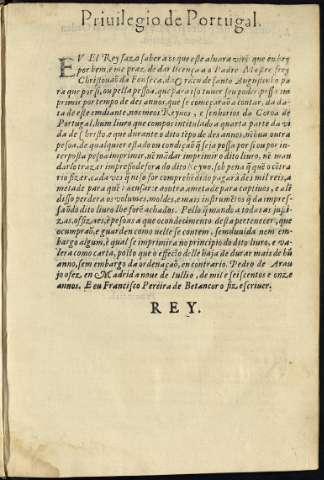 Priuilegio de Portugal.
EV El Rey faz, a saber a os que este aluara virẽ que eu hey
por bem, e me praz, de dar licença a o Padre Mestre frey
Christouaõ da Fonseca, da Ordem de santo Augustinho pa
ra que por si, ou pella pessoa, que para isso tiuer seu poder, possa im
primir por tempo de des annos, que se começaraõ a contar, da da-
ta de este em diante, nos meos Reynos, e senhorios da Coroa de
Portugal, hum liuro, que compos intitulado a quarta parte da vi
da de Christo, e que durante o dito tẽpo de des annos, nẽhuã outra
pesoa, de qualquier estado ou condiçaõ q̃ seja possa por si, ou por in-
terposta pesoa imprimir, nẽ mãdar imprimir o dito liuro, nẽ man
dar lo trazer impresso de fora do dito Reyno, sob pena q̃ que o cõtra
rio fizer, cada vez q̃ nesso for comprehẽdido pagará des mil reis, a
metade para quẽ i acusar: e a outra ametade para captiuos, e alẽ
disso perdera os volumes, moldes, e mais instrumẽtos q̃ da impres-
saõ do dito liuro lhe forẽ achados. Pello q̃ mando a todas as justi-
zas, officiaes, e pesoas a que o conhecimento desta pertencer, que
o cumpraõ, e guarden como nelle se contem, sem duuida nem em-
bargo algum, è qual se imprimira no principio do dito liuro, e va-
lera como carta, posto que o effecto delle haja de durar mais de hũ
anno, sem embargo da ordenaçaõ, en contrario. Pedro de Arau
jo o fez, en Madrid a noue de Iulho, de mil e seiscentos e onze
annos. E eu Francisco Pereira de Betancor o fiz escriuer.
REY.